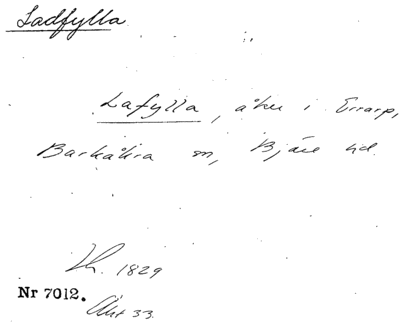 Ladfylla
Lafylla, åker i Errarp,
Barkåkra sn, Bjäre hd.
Lh. 1829
Nr 7012.
Akt 33.